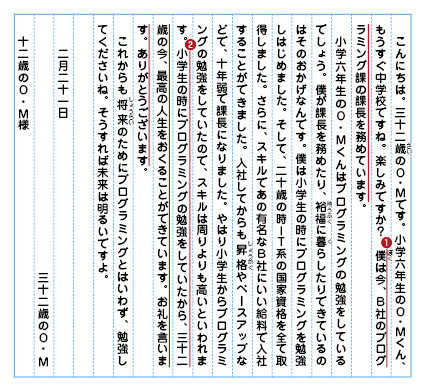 こんにちは。三十二歳のO・Mです。小学六年生のO・Mくん、
さい
もうすぐ中学校ですね。楽しみですか?❶僕は今、B社のプログ
ぼく
ラミング課の課長を務めています。
小学六年生のO・Mくんはプログラミングの勉強をしている
でしょう。僕が課長を務めたり、裕福に暮らしたりできているの
ゆうふく
く
はそのおかげなんです。僕は小学生の時にプログラミングを勉強
しはじめました。そして、二十歳の時IT系の国家資格を全て取
得しました。さらに、スキルであの有名なB社にいい給料で入社
することができました。入社してからも昇格やベースアップな
しょうかく
どで、十年弱で課長になりました。やはり小学生からプログラミ
ングの勉強をしていたので、スキルは周りよりも高いといわれま
す。❷小学生の時にプログラミングの勉強をしていたから、三十二
歳の今、最高の人生をおくることができています。お礼を言いま
す。ありがとうございます。
これからも将来のためにプログラミングとはいわず、勉強し
しょうらい
てくださいね。そうすれば未来は明るいですよ。
二月二十一日
三十二歳のO・M
十二歳のO・M様